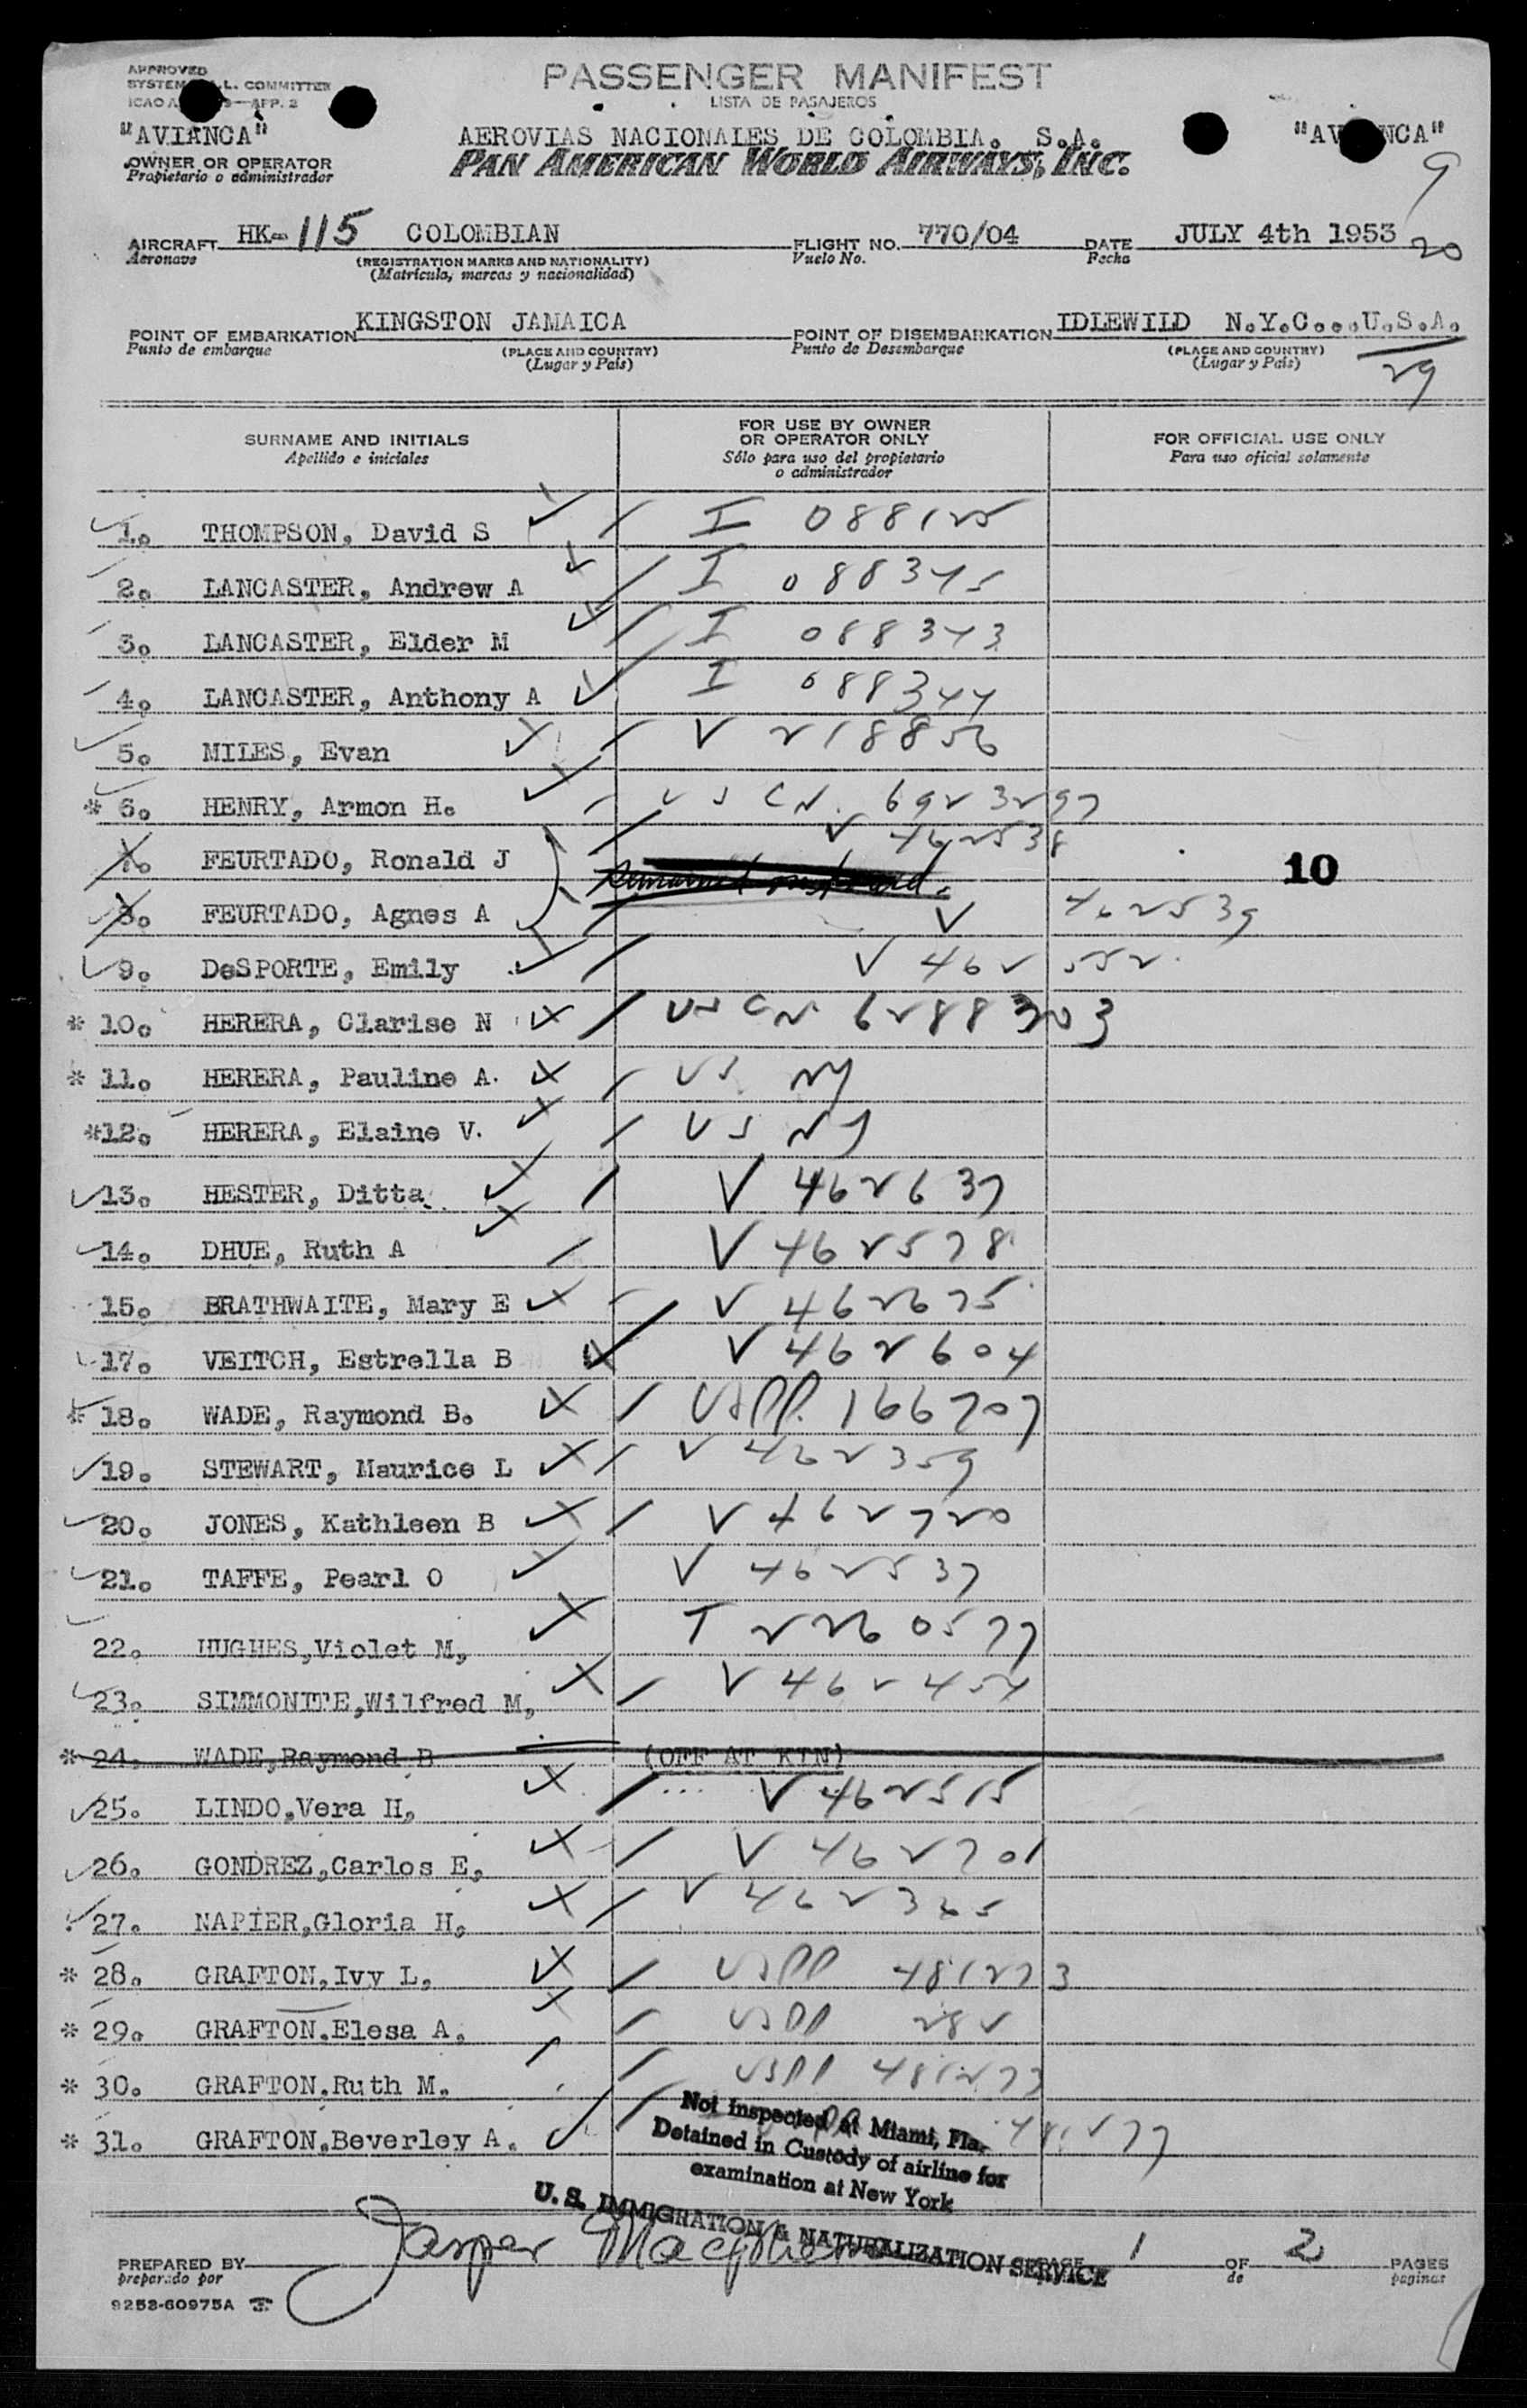 APPROVED
SYSTEM L. COMMITTEE
ICAO A 9—APP. 2
PASSENGER MANIFEST
LISTA DE PASAJEROS
"AVIANCA" AEROVIAS NACIONALES DE COLOMBIA. S.A. "AVIANCA"
OWNER OR OPERATOR PAN AMERICAN WORLD AIRWAYS, INC.
Propietario o administrador
9
AIRCRAFT HK-115 COLOMBIAN FLIGHT NO. 770/04 DATE JULY 4th 1953
Aeronave (REGISTRATION MARKS AND NATIONALITY) Vuelo No. Fecha 20
(Matrícula, marcas y nacionalidad)
POINT OF EMBARKATION KINGSTON JAMAICA POINT OF DISEMBARKATION IDLEWILD N.Y.C...U.S.A.
Punto de embarque (PLACE AND COUNTRY) Punto de Desembarque (PLACE AND COUNTRY)
(Lugar y País) (Lugar y País) 29
SURNAME AND INITIALS FOR USE BY OWNER OR OPERATOR ONLY FOR OFFICIAL USE ONLY
Apellido e iniciales Sólo para uso del propietario o administrador Para uso oficial solamente
1. THOMPSON, David S I 088125
2. LANCASTER, Andrew A I 088345
3. LANCASTER, Elder M I 088343
4. LANCASTER, Anthony A I 088344
5. MILES, Evan V 218856
* 6. HENRY, Armon H. US CN. 6923297
7. FEURTADO, Ronald J V 462538
10
8. FEURTADO, Agnes A V 462539
9. DeSPORTE, Emily V 462552
* 10. HERERA, Clarise N US CN 6288303
* 11. HERERA, Pauline A. US NY
*12. HERERA, Elaine V. US NY
13. HESTER, Ditta V 462637
14. DHUE, Ruth A V 462578
15. BRATHWAITE, Mary E V 462675
17. VEITCH, Estrella B V 462604
* 18. WADE, Raymond B. USPP. 166707
19. STEWART, Maurice L V 462359
20. JONES, Kathleen B V 462720
21. TAFFE, Pearl O V 462537
22. HUGHES,Violet M, T 2260577
23. SIMMONITE,Wilfred M, V 462454
* 24. WADE,Raymond B (OFF AT KIN)
25. LINDO,Vera H, V 462515
26. GONDREZ,Carlos E, V 462701
27. NAPIER,Gloria H, V 462365
* 28. GRAFTON,Ivy L, USPP 481273
* 29. GRAFTON.Elesa A. USPP 282
* 30. GRAFTON.Ruth M. USPP 481273
* 31. GRAFTON.Beverley A.
Not inspected at Miami, Fla.
Detained in Custody of airline for
examination at New York
U. S. IMMIGRATION & NATURALIZATION SERVICE
PREPARED BY Jasper 1 OF 2 PAGES
preparado por de paginas
9253-60975A